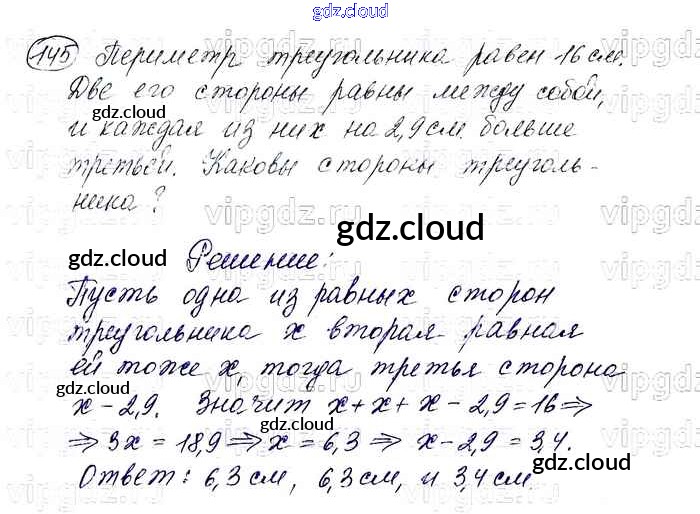 gdz.cloud
145 Периметр треугольника равен 16 см.
Две его стороны равны между собой,
gdz.cloud
и каждая из них на 2,9 см больше
третьей. Каковы стороны треуголь-
ника?
gdz.cloud
gdz.cloud Решение: gdz.cloud
Пусть одна из равных сторон
треугольника x вторая равная
ей тоже x, тогда третья сторона
gdz.cloud
x - 2,9. Значит x + x + x - 2,9 = 16 ⇒
gdz.cloud
⇒ 3x = 18,9 ⇒ x = 6,3 ⇒ x - 2,9 = 3,4.
gdz.cloud
Ответ: 6,3 см, 6,3 см, и 3,4 см